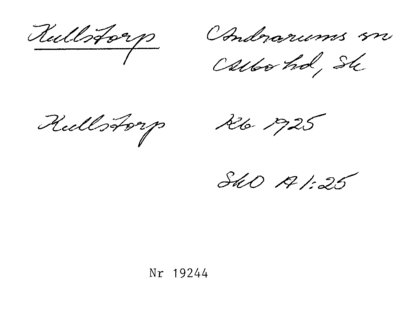 Kullstorp Andrarums sn
Albo hd, Sk
Kullstorp Kb 1925
SkO A1:25
Nr 19244